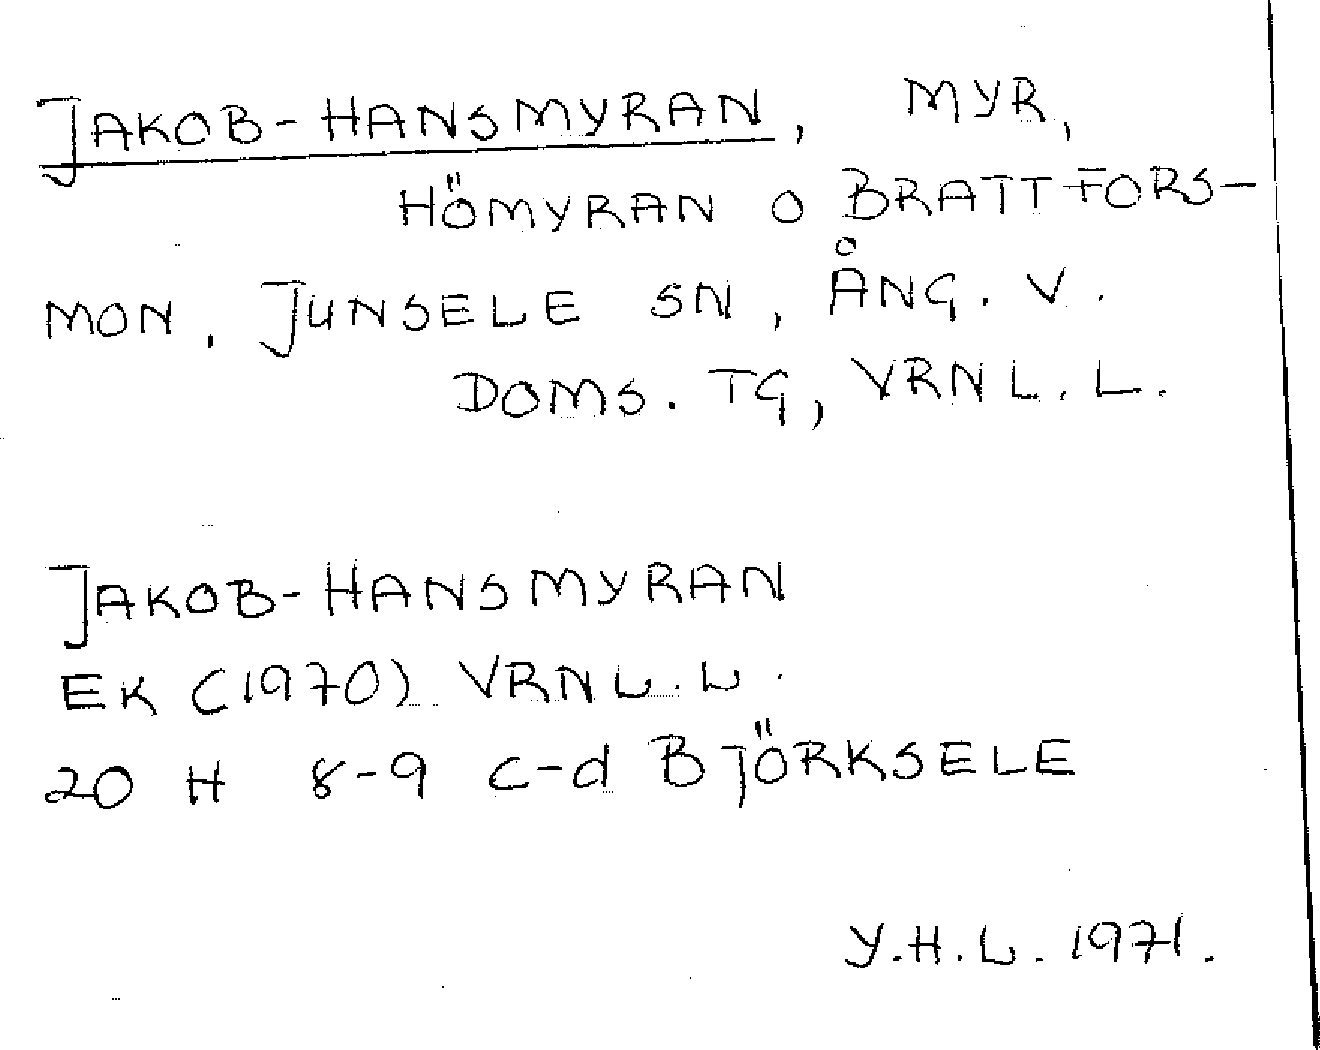 JAKOB-HANSMYRAN, MYR,
HÖMYRAN O BRATTFORS-
MON, JUNSELE SN, ÅNG. V.
DOMS. TG, VRNL. L.
JAKOB-HANSMYRAN
EK (1970) VRNL. L.
20 H 8-9 c-d BJÖRKSELE
Y.H.L. 1971.